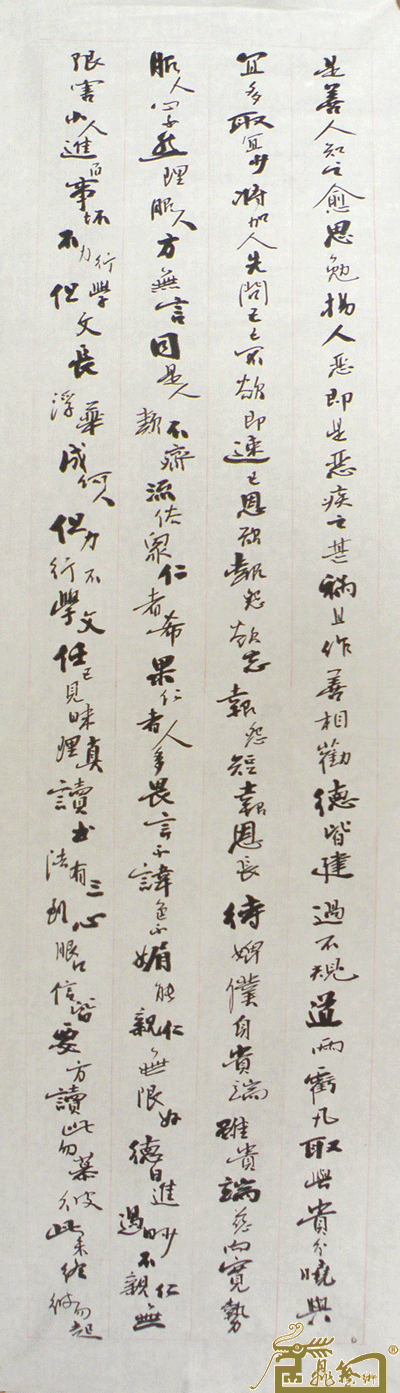 是善人知之愈思勉揚人惡即是惡疾之甚禍且作善相勸德皆建過不規道兩虧凡取與貴分曉與
宜多取宜少將加人先問己己不欲即速已恩欲報怨欲忘報怨短報恩長待婢僕身貴端雖貴端慈而寬勢
服人心不然理服人方無言同是人類不齊流俗眾仁者希果仁者人多畏言不諱色不媚能親仁無限好德日進過日少不親仁無
限害小人進百事壞不力行學但文長浮華成何人但力行不學文任己見昧理真讀書法有三心眼口信皆要方讀此勿慕彼此未終彼勿起